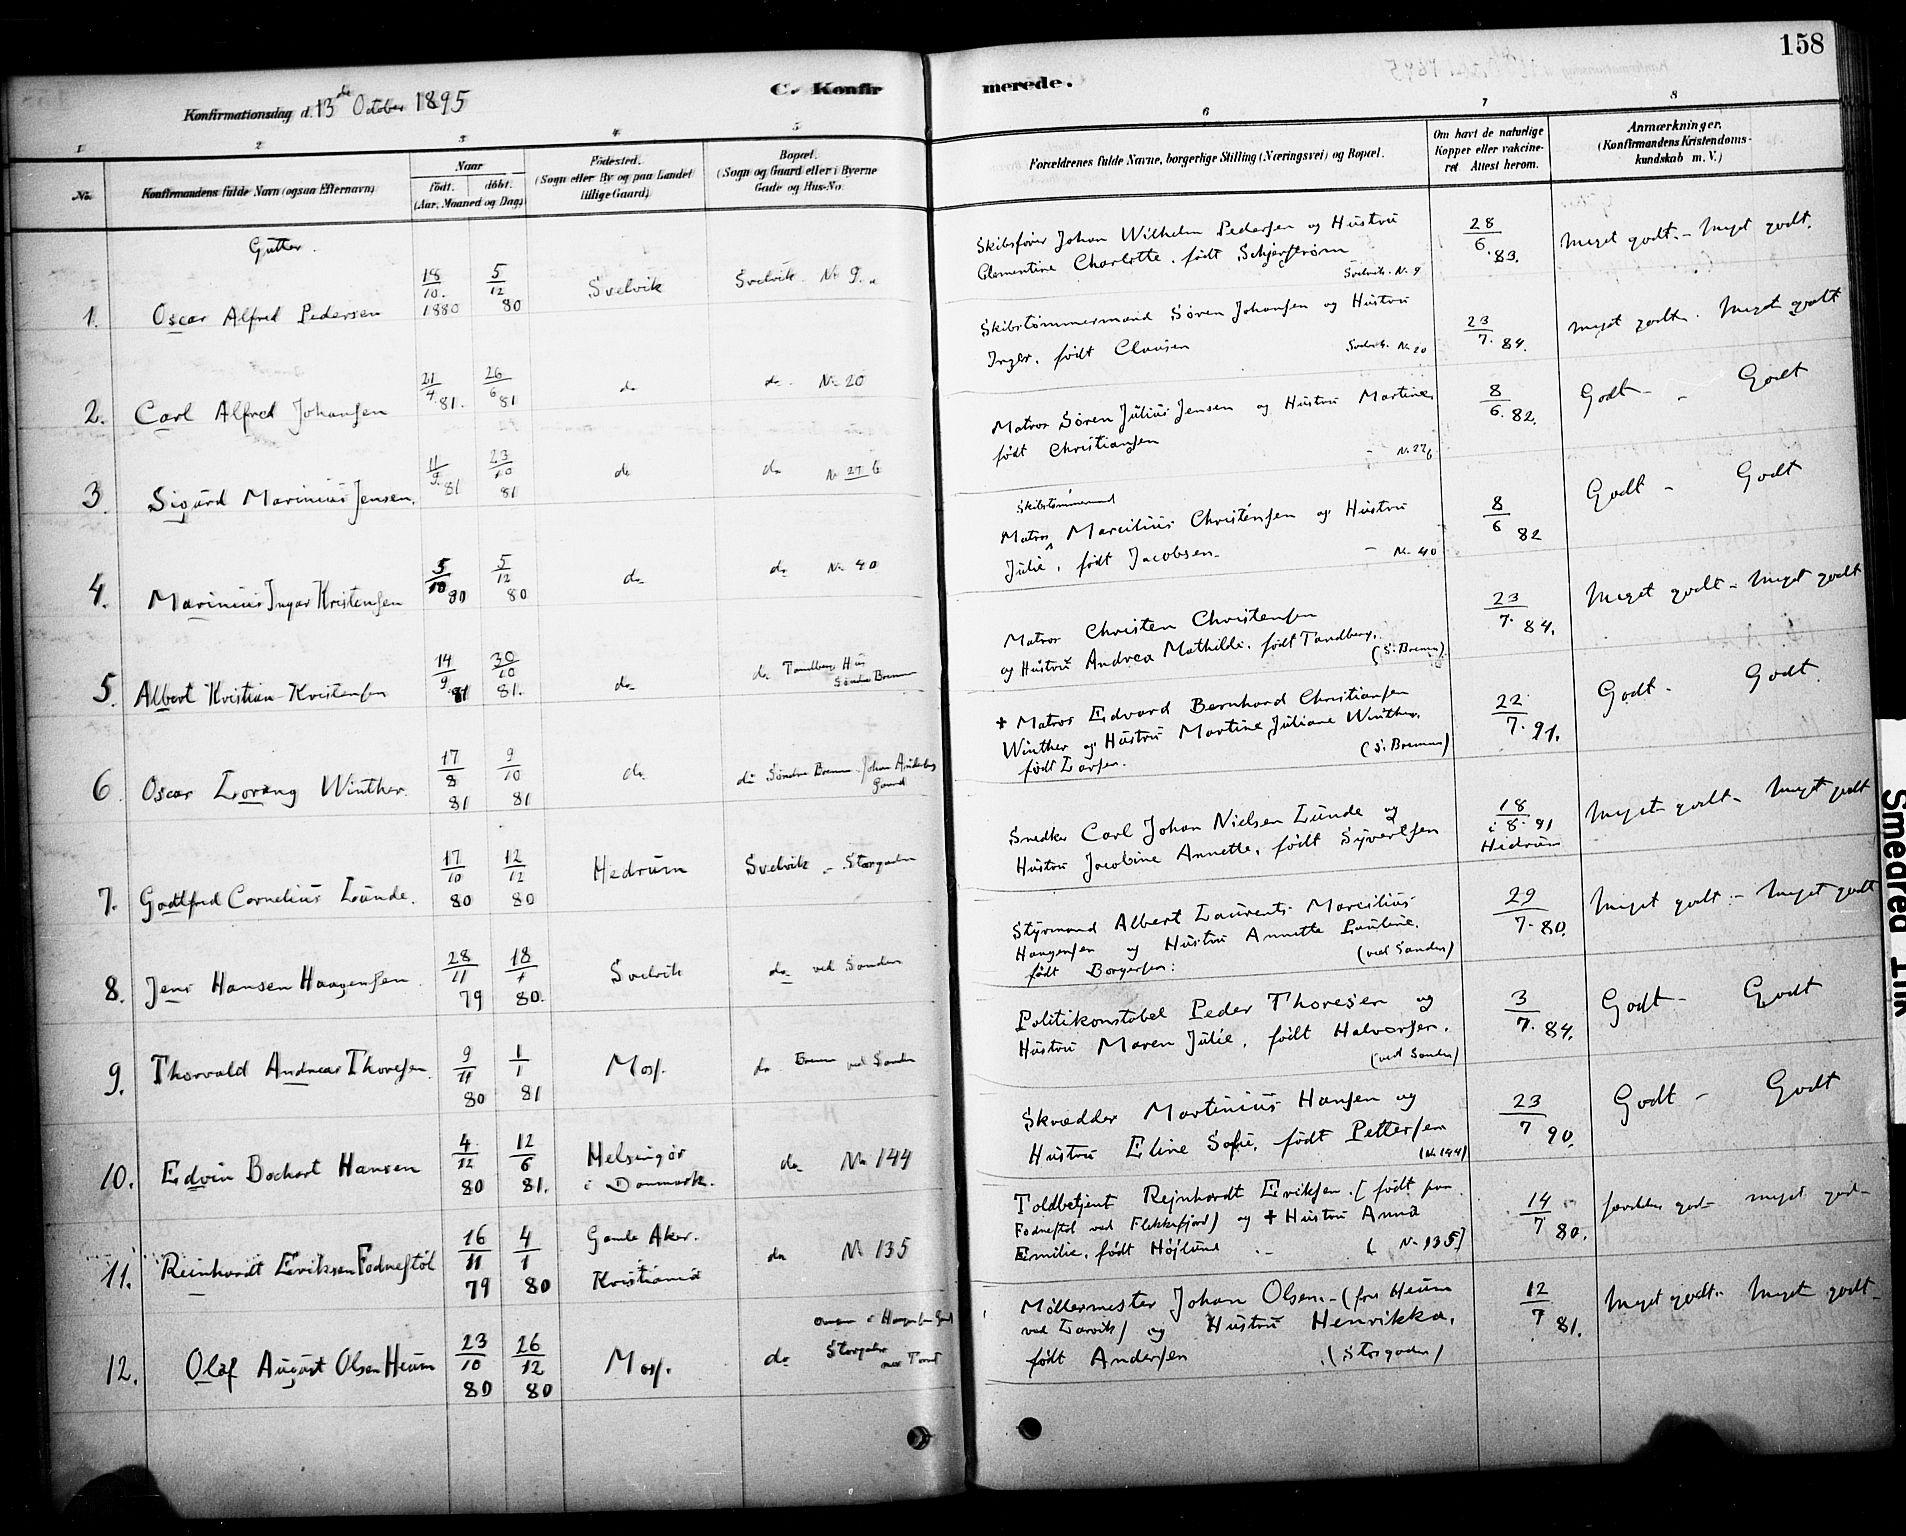 158
C. Konfirmerede.
Konfirmationsdag d. 13de October 1895
1 2 3 4 5 6 7 8
No.
Konfirmandens fulde Navn (ogsaa Efternavn)
Naar
født. døbt.
(Aar, Maaned og Dag)
Fødested.
(Sogn eller By og paa Landet
tillige Gaard)
Bopæl.
(Sogn og Gaard eller i Byerne
Gade og Hus-No.
Forældrenes fulde Navne, borgerlige Stilling (Næringsvei) og Bopæl.
Om havt de naturlige
Kopper eller vakcine-
ret Attest herom.
Anmærkninger.
(Konfirmandens Kristendoms-
kundskab m. V.)
Gutter.
1. Oscar Alfred Pedersen 18/10. 1880 5/12 80 Svelvik Svelvik No 9.
Skibsfører Johan Wilhelm Pedersen og Hustru
Clementine Charlotte, født
Svelvik No 9
28/6 83. Meget godt. - Meget godt.
2. Carl Alfred Johansen 21/4 81. 26/6 81 do do No 20
Skibstømmermand Søren Johansen og Hustru
Inger, født Clausen Svelvik No 20
23/7. 84. Meget godt. Meget godt
3. Sigurd Marinius Jensen. 11/9. 81 23/10 81 do do No 27 b
Matros Søren Julius Jensen og Hustru Martine
født Christiansen
8/6. 82. Godt - Godt
4. Marinius Ingar Kristensen 5/10 80 5/12 80 do do No 40
Skibstømmermand
Matros Marcilius Christensen og Hustru
Julie, født Jacobsen - No 40
8/6 82 Godt - Godt
5. Albert Kristian Kristensen 14/9 81 30/10 81. do do Tandberg Hus
Søndre Bremm
Matros Christen Christensen
og Hustru Andrea Mathilde, født Tandberg.
(S. Bremm)
23/7. 84. Meget godt - Meget godt
6. Oscar Lorang Winther 17/8 81 9/10 81 do do Søndre Bremm Johan
Gaard
+ Matros Edvard Bernhard Christiansen
Winther og Hustru Martine Juliane Winther,
født Larsen. (S. Bremm)
22/7. 91. Godt - Godt.
7. Godtfred Cornelius Lunde. 17/10 80 12/12 80 Hedrum Svelvik - Storgaden
Snedker Carl Johan Nielsen Lunde og
Hustru Jacobine Annette, født Syvertsen
18/8. 91
i Hedrum
Meget godt - Meget godt
8. Jens Hansen Haagensen. 28/11 79 18/1 80. Svelvik do ved Sanden
Styrmand Albert Laurents Marcilius
Haagensen og Hustru Annette Pauline,
født Borgersen: (ved Sanden)
29/7. 80. Meget godt - Meget godt
9. Thorvald Andreas Thoresen. 9/11 80 1/1 81 Moss. do Bremm ved Sanden
Politikonstabel Peder Thoresen og
Hustru Maren Julie, født Halvorsen.
(ved Sanden)
3/7. 84. Godt - Godt
10. Edvin Bochart Hansen 4/12 80 12/6 81. Helsingør
i Danmark. do No 144
Skrædder Martinius Hansen og
Hustru Eline Sofie, født Pettersen
(No 144)
23/7 90. Godt - Godt
11. Reinhardt Eriksen Fodnestøl 16/11 79 4/1 80 Gamle Aker.
Kristiania do No 135
Toldbetjent Rejnhardt Eriksen. [født paa
Fodnestøl ved Flekkefjord) og + Hustru Anna
Emilie, født Højlund [No 135]
14/7 80. særdeles godt meget godt
12. Olaf August Olsen Heum 23/10 80 26/12 80 Moss. do Storgaden
Møllermester Johan Olsen. - (fra Heum
ved Larvik) og Hustru Henrikka,
født Andersen (Storgaden)
12/7 81. Meget godt - Meget godt -
Smedred Ink